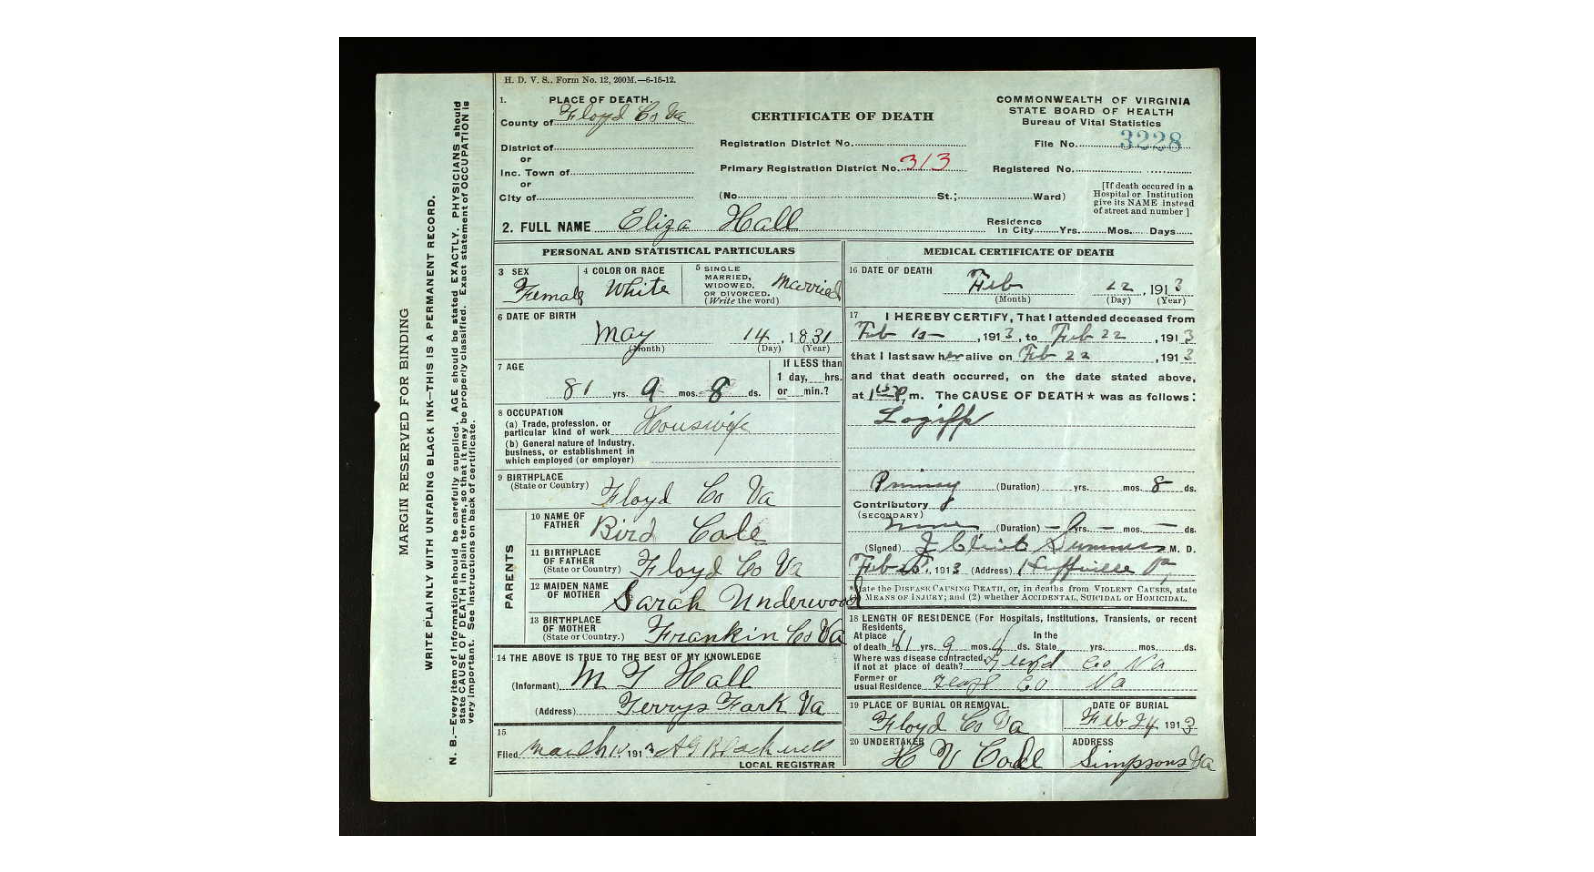 H. D. V. S., Form No. 12, 200M.—6-15-12.
1. PLACE OF DEATH.
County of Floyd Co Va
District of
or
Inc. Town of
or
City of
CERTIFICATE OF DEATH
Registration District No.
Primary Registration District No. 313
(No. St.; Ward)
COMMONWEALTH OF VIRGINIA
STATE BOARD OF HEALTH
Bureau of Vital Statistics
File No. 3228
Registered No.
[If death occured in a
Hospital or Institution
give its NAME instead
of street and number]
2. FULL NAME Eliza Hall
Residence
In City Yrs. Mos. Days
PERSONAL AND STATISTICAL PARTICULARS
3 SEX
Female
4 COLOR OR RACE
White
5 SINGLE
MARRIED,
WIDOWED,
OR DIVORCED.
(Write the word)
Married
6 DATE OF BIRTH
May 14, 1831
(Month) (Day) (Year)
7 AGE
81 yrs. 9 mos. 8 ds.
If LESS than
1 day, hrs.
or min.?
8 OCCUPATION
(a) Trade, profession, or
particular kind of work Houswife
(b) General nature of Industry,
business, or establishment in
which employed (or employer)
9 BIRTHPLACE
(State or Country) Floyd Co Va
PARENTS
10 NAME OF
FATHER Bird Cole
11 BIRTHPLACE
OF FATHER
(State or Country) Floyd Co Va
12 MAIDEN NAME
OF MOTHER Sarah Underwood
13 BIRTHPLACE
OF MOTHER
(State or Country.) Frankin Co Va
14 THE ABOVE IS TRUE TO THE BEST OF MY KNOWLEDGE
(Informant) M T Hall
(Address) Terrys Fork Va
15
Filed March 191 A G Blackwell
LOCAL REGISTRAR
MEDICAL CERTIFICATE OF DEATH
16 DATE OF DEATH
Feb 22, 1913
(Month) (Day) (Year)
17 I HEREBY CERTIFY, That I attended deceased from
Feb , 1913, to Feb 22, 1913
that I last saw her alive on Feb 22, 1913
and that death occurred, on the date stated above,
at m. The CAUSE OF DEATH★ was as follows:
Lagrippe
(Duration) yrs. mos. 8 ds.
Contributory
(SECONDARY)
None (Duration) yrs. mos. ds.
(Signed) M. D.
Feb , 1913 (Address) Huffville
*State the DISEASE CAUSING DEATH, or, in deaths from VIOLENT CAUSES, state
MEANS OF INJURY; and (2) whether ACCIDENTAL, SUICIDAL or HOMICIDAL.
18 LENGTH OF RESIDENCE (For Hospitals, Institutions, Transients, or recent
Residents.
At place In the
of death 81 yrs. 9 mos. ds. State yrs. mos. ds.
Where was disease contracted,
If not at place of death? Floyd Co Va
Former or
usual Residence Floyd Co Va
19 PLACE OF BURIAL OR REMOVAL.
Floyd Co Va
DATE OF BURIAL
Feb 24 1913
20 UNDERTAKER
H V
ADDRESS
Simpsons Va
MARGIN RESERVED FOR BINDING
WRITE PLAINLY WITH UNFADING BLACK INK—THIS IS A PERMANENT RECORD.
N. B.—Every item of Information should be carefully supplied. AGE should be stated EXACTLY. PHYSICIANS should
state CAUSE OF DEATH in plain terms, so that it may be properly classified. Exact statement of OCCUPATION is
very important. See Instructions on back of certificate.